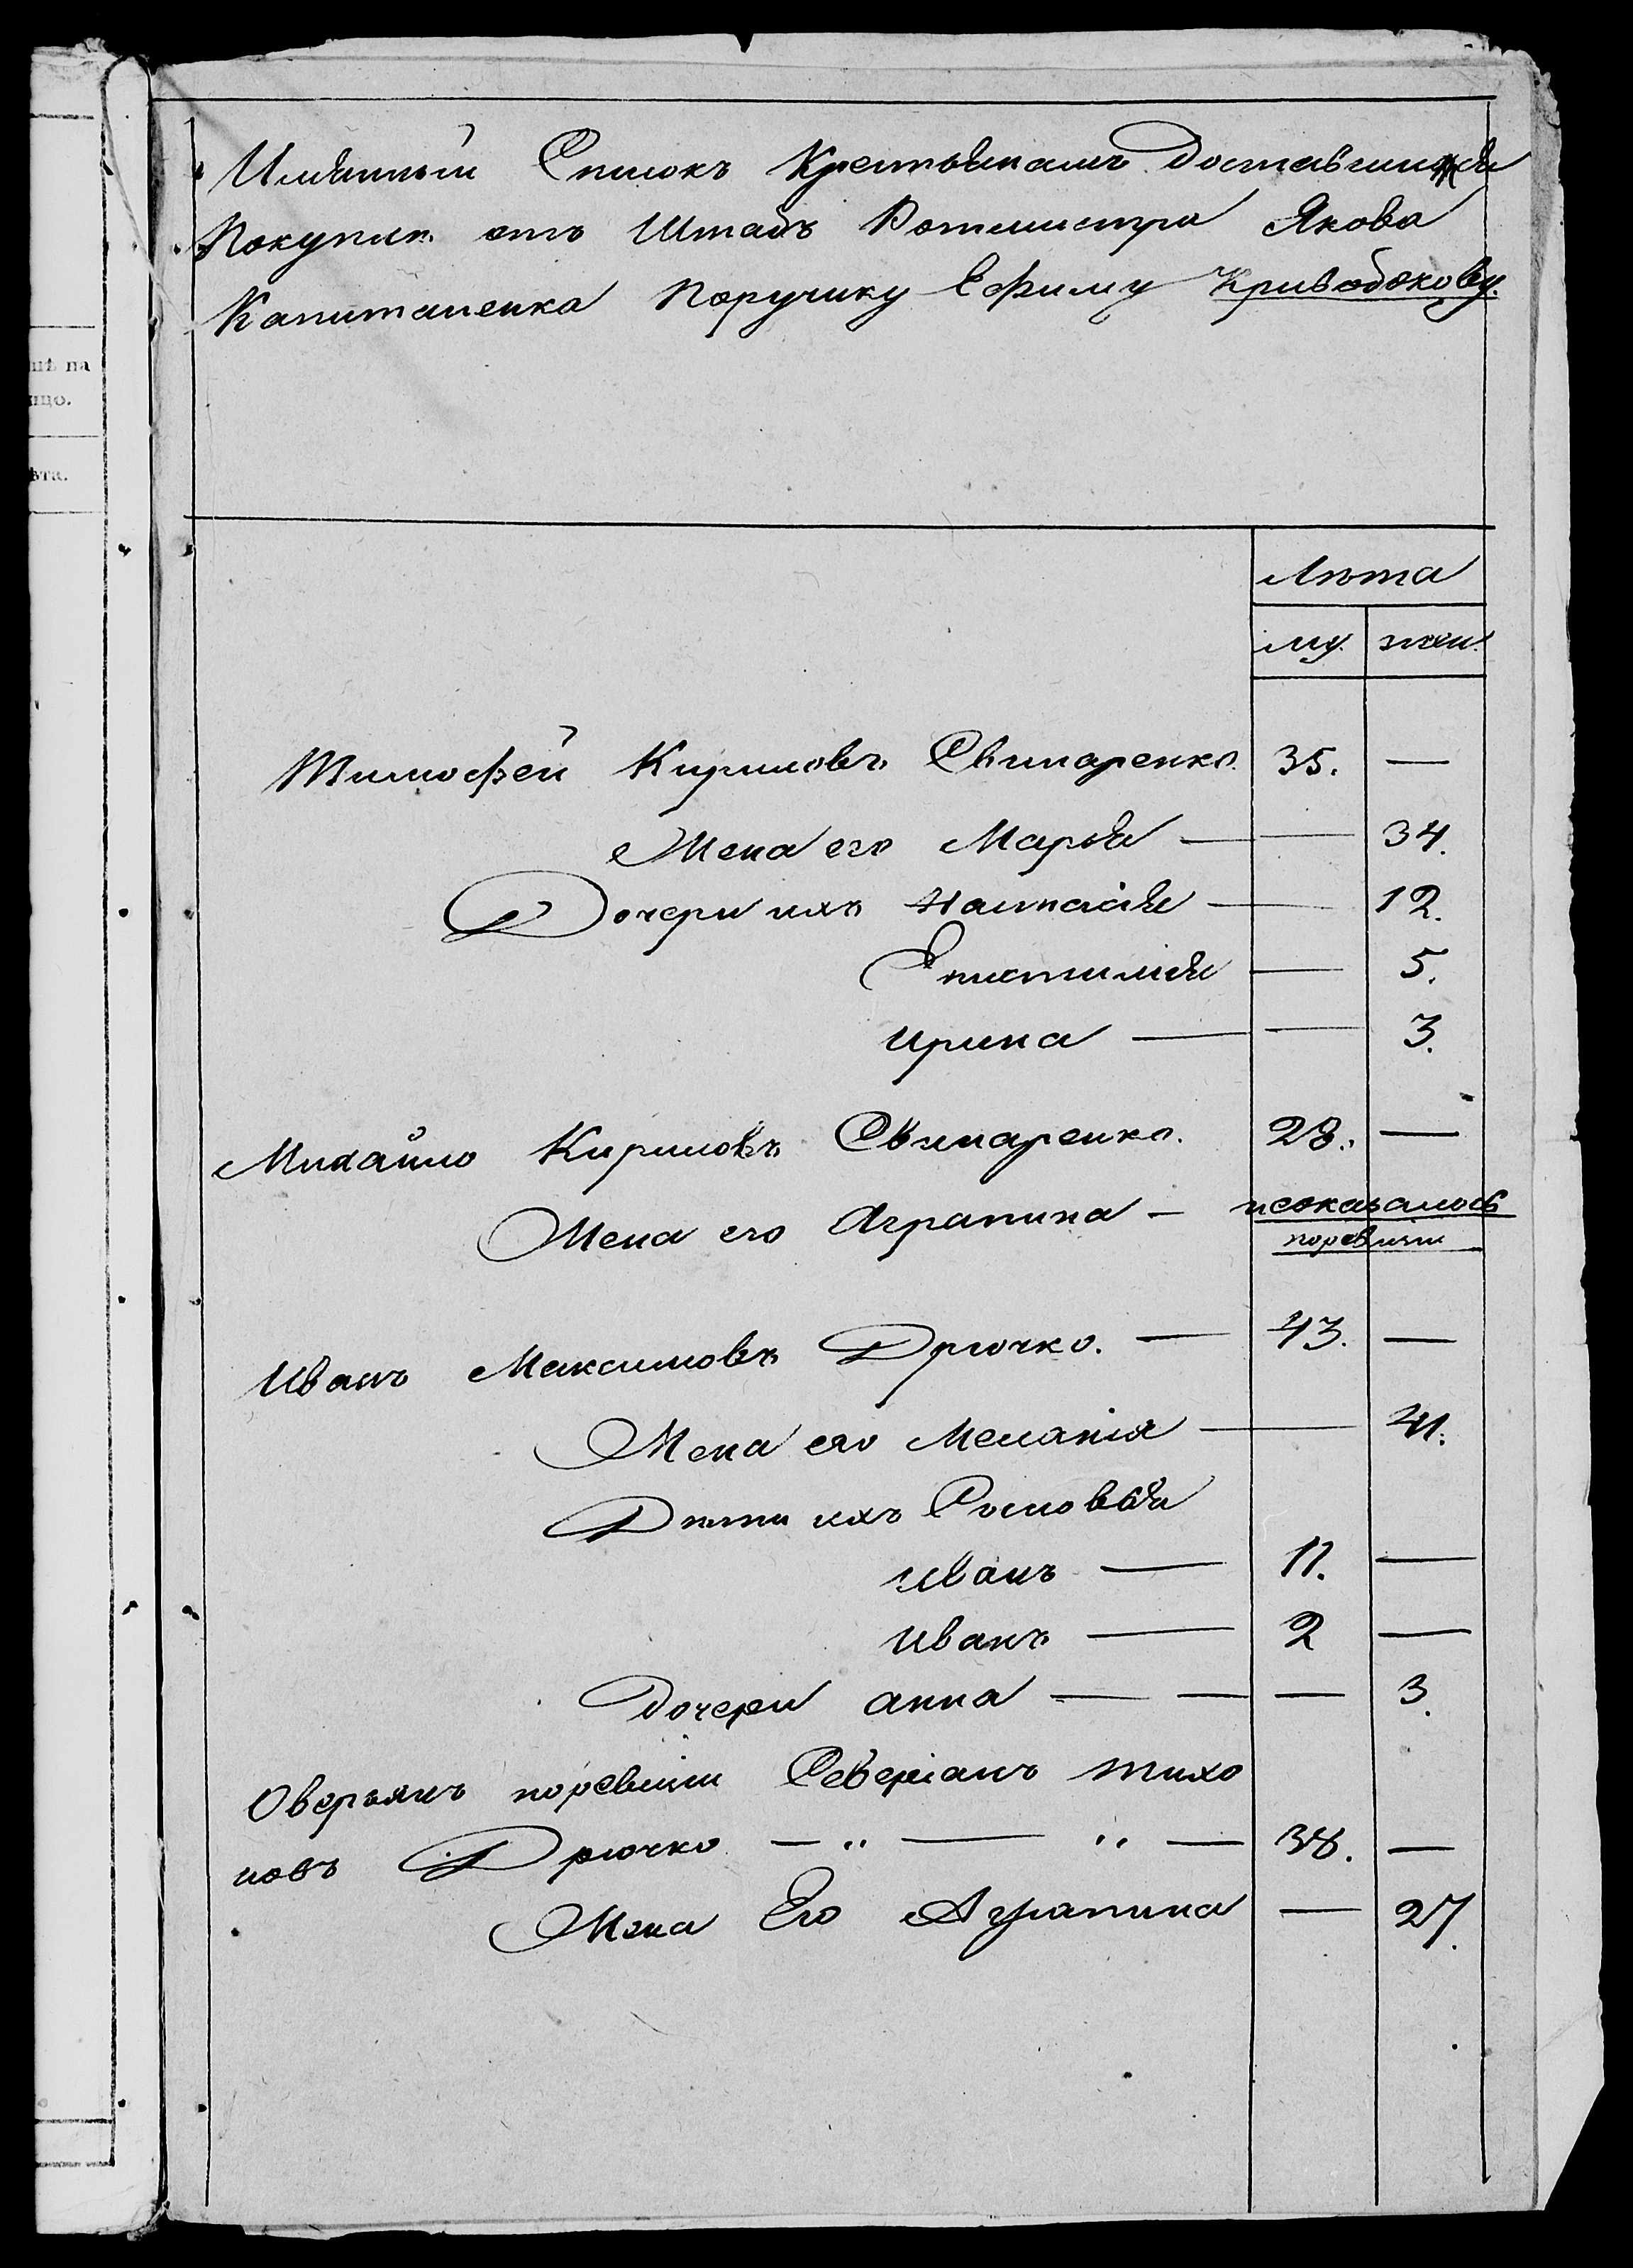 нѣ на
ицо.
ѣта.
Имянный Списокъ Крестьянамъ доставшимся
Покупки отъ Штабъ Ротмистра Якова
Капитаненка Поручику Ефиму Кривобокову.
Лѣта
му. жен.
Тимофей Кириловъ Свинаренко. 35. —
Жена его Марья — — 34.
Дочери ихъ Настасія — — 12.
Епистимія — 5.
Ирина — — 3.
Михайло Кириловъ Свинаренко. 28. —
Жена его Аграпина — неоказалось
поревизіи
Иванъ Максимовъ Дрючко. — 43. —
Жена его Меланія — 41.
Дѣти ихъ Сыновья
Иванъ — 11. —
Иванъ — 2 —
Дочери анна — — — 3.
Оверьянъ поревизіи Северіанъ Тихо
новъ Дрючко — „ — „ — 38. —
Жена Его Аграпина — 27.